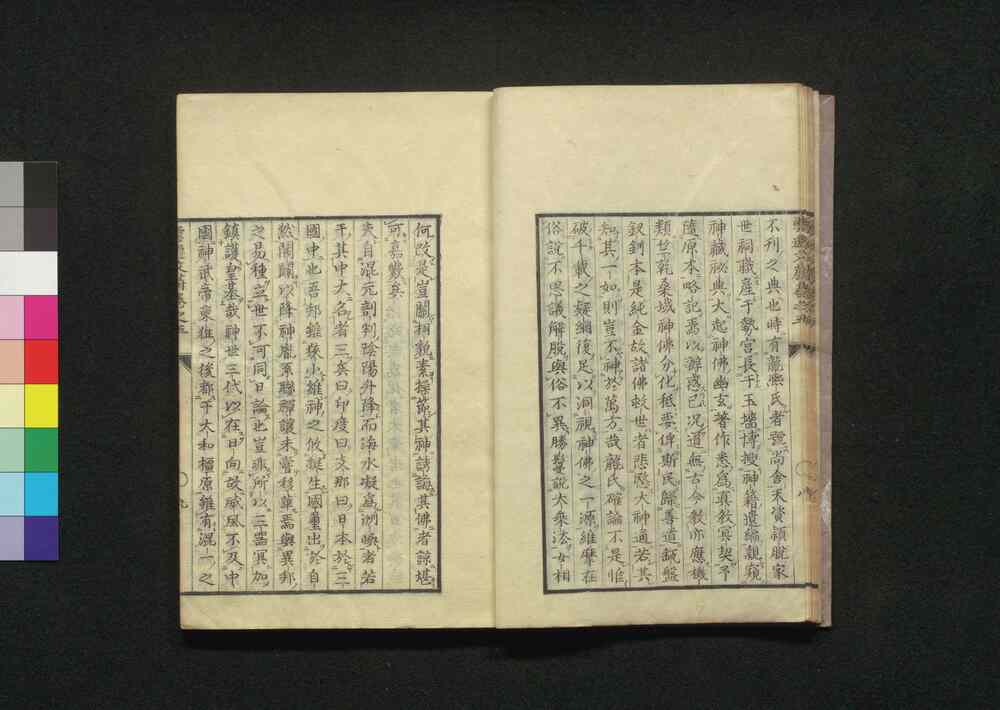 不刊之典也時有龍熈氏者號尚舎天資頴脱家
世祠職産于勢宮長于玉墻博搜神籍遺編覩窺
神藏祕典大起神佛幽玄著作悉爲眞教冥契乎
隨原本略記焉以辯惑已况道無古今教亦應機
類出乾桑域神佛分化秖要俾斯民歸善道瓶盤
釵釧本是純金故諸佛救世者悲愍大神通若其
知其一如則豈不神於萬方哉龍氏確論不是惟
破千載之疑網復足以洞視神佛之一源維摩在
俗説不思議解脱與俗不異勝鬘説大乘法女相
何改是豈關相貌素操節其神請誨其佛者諒堪
可嘉歎矣
夫自混元剖判陰陽升降而海水凝爲洲嶼者若
干其中大名者三矣曰印度曰支那曰日本於三
國中也吾邦雖褊小維神之攸誕生國璽出於自
然開闢以降神胤系聯聯讓未嘗移葉焉與異邦
之易種立世不可同日論也豈非所以三器冥加
鎮護皇基哉神世三代以在日向故威風不及中
國神武帝東征之後都于大和橿原雖有混一之
八
九